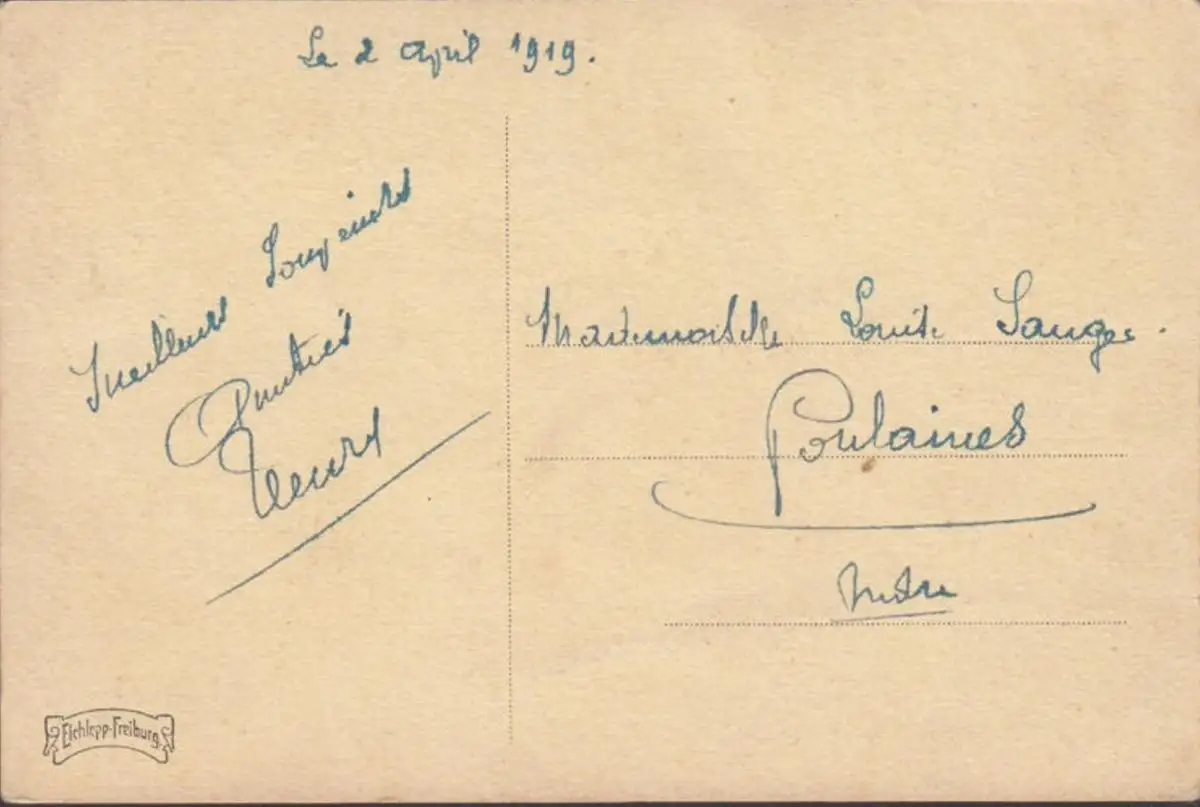 Le 2 April 1919.
Meilleurs Souvenirs
Amitiés
Henry
Mademoiselle Louise Sauger.
Poulaines
Indre
Eichlepp-Freiburg